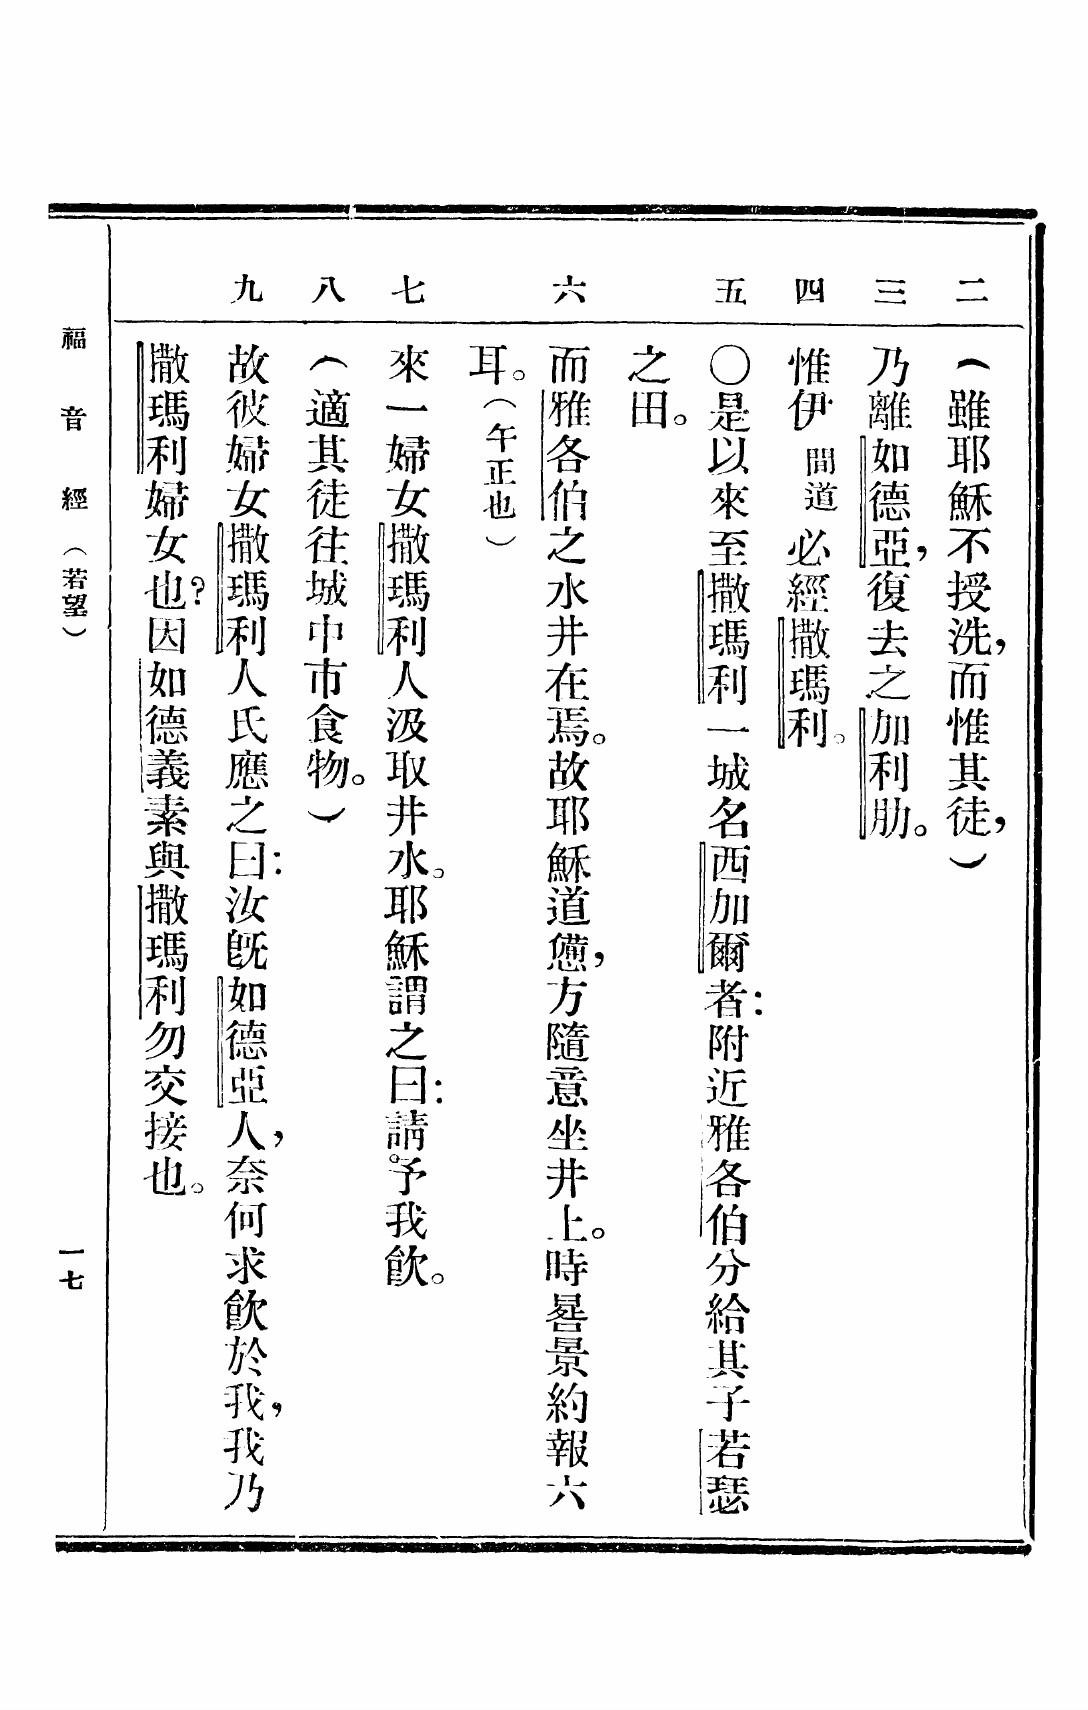 二 (雖耶穌不授洗，而惟其徒，)
三 乃離如德亞，復去之加利肋。
四 惟伊間道必經撒瑪利。
五 〇是以來至撒瑪利一城名西加爾者：附近雅各伯分給其子若瑟
之田。
六 而雅各伯之水井在焉。故耶穌道憊，方隨意坐井上。時晷景約報六
耳。(午正也)
七 來一婦女撒瑪利人汲取井水。耶穌謂之曰：請予我飮。
八 (適其徒往城中市食物。)
九 故彼婦女撒瑪利人氏應之曰：汝旣如德亞人，奈何求飮於我，我乃
撒瑪利婦女也？因如德義素與撒瑪利勿交接也。
福音經(若望) 一七